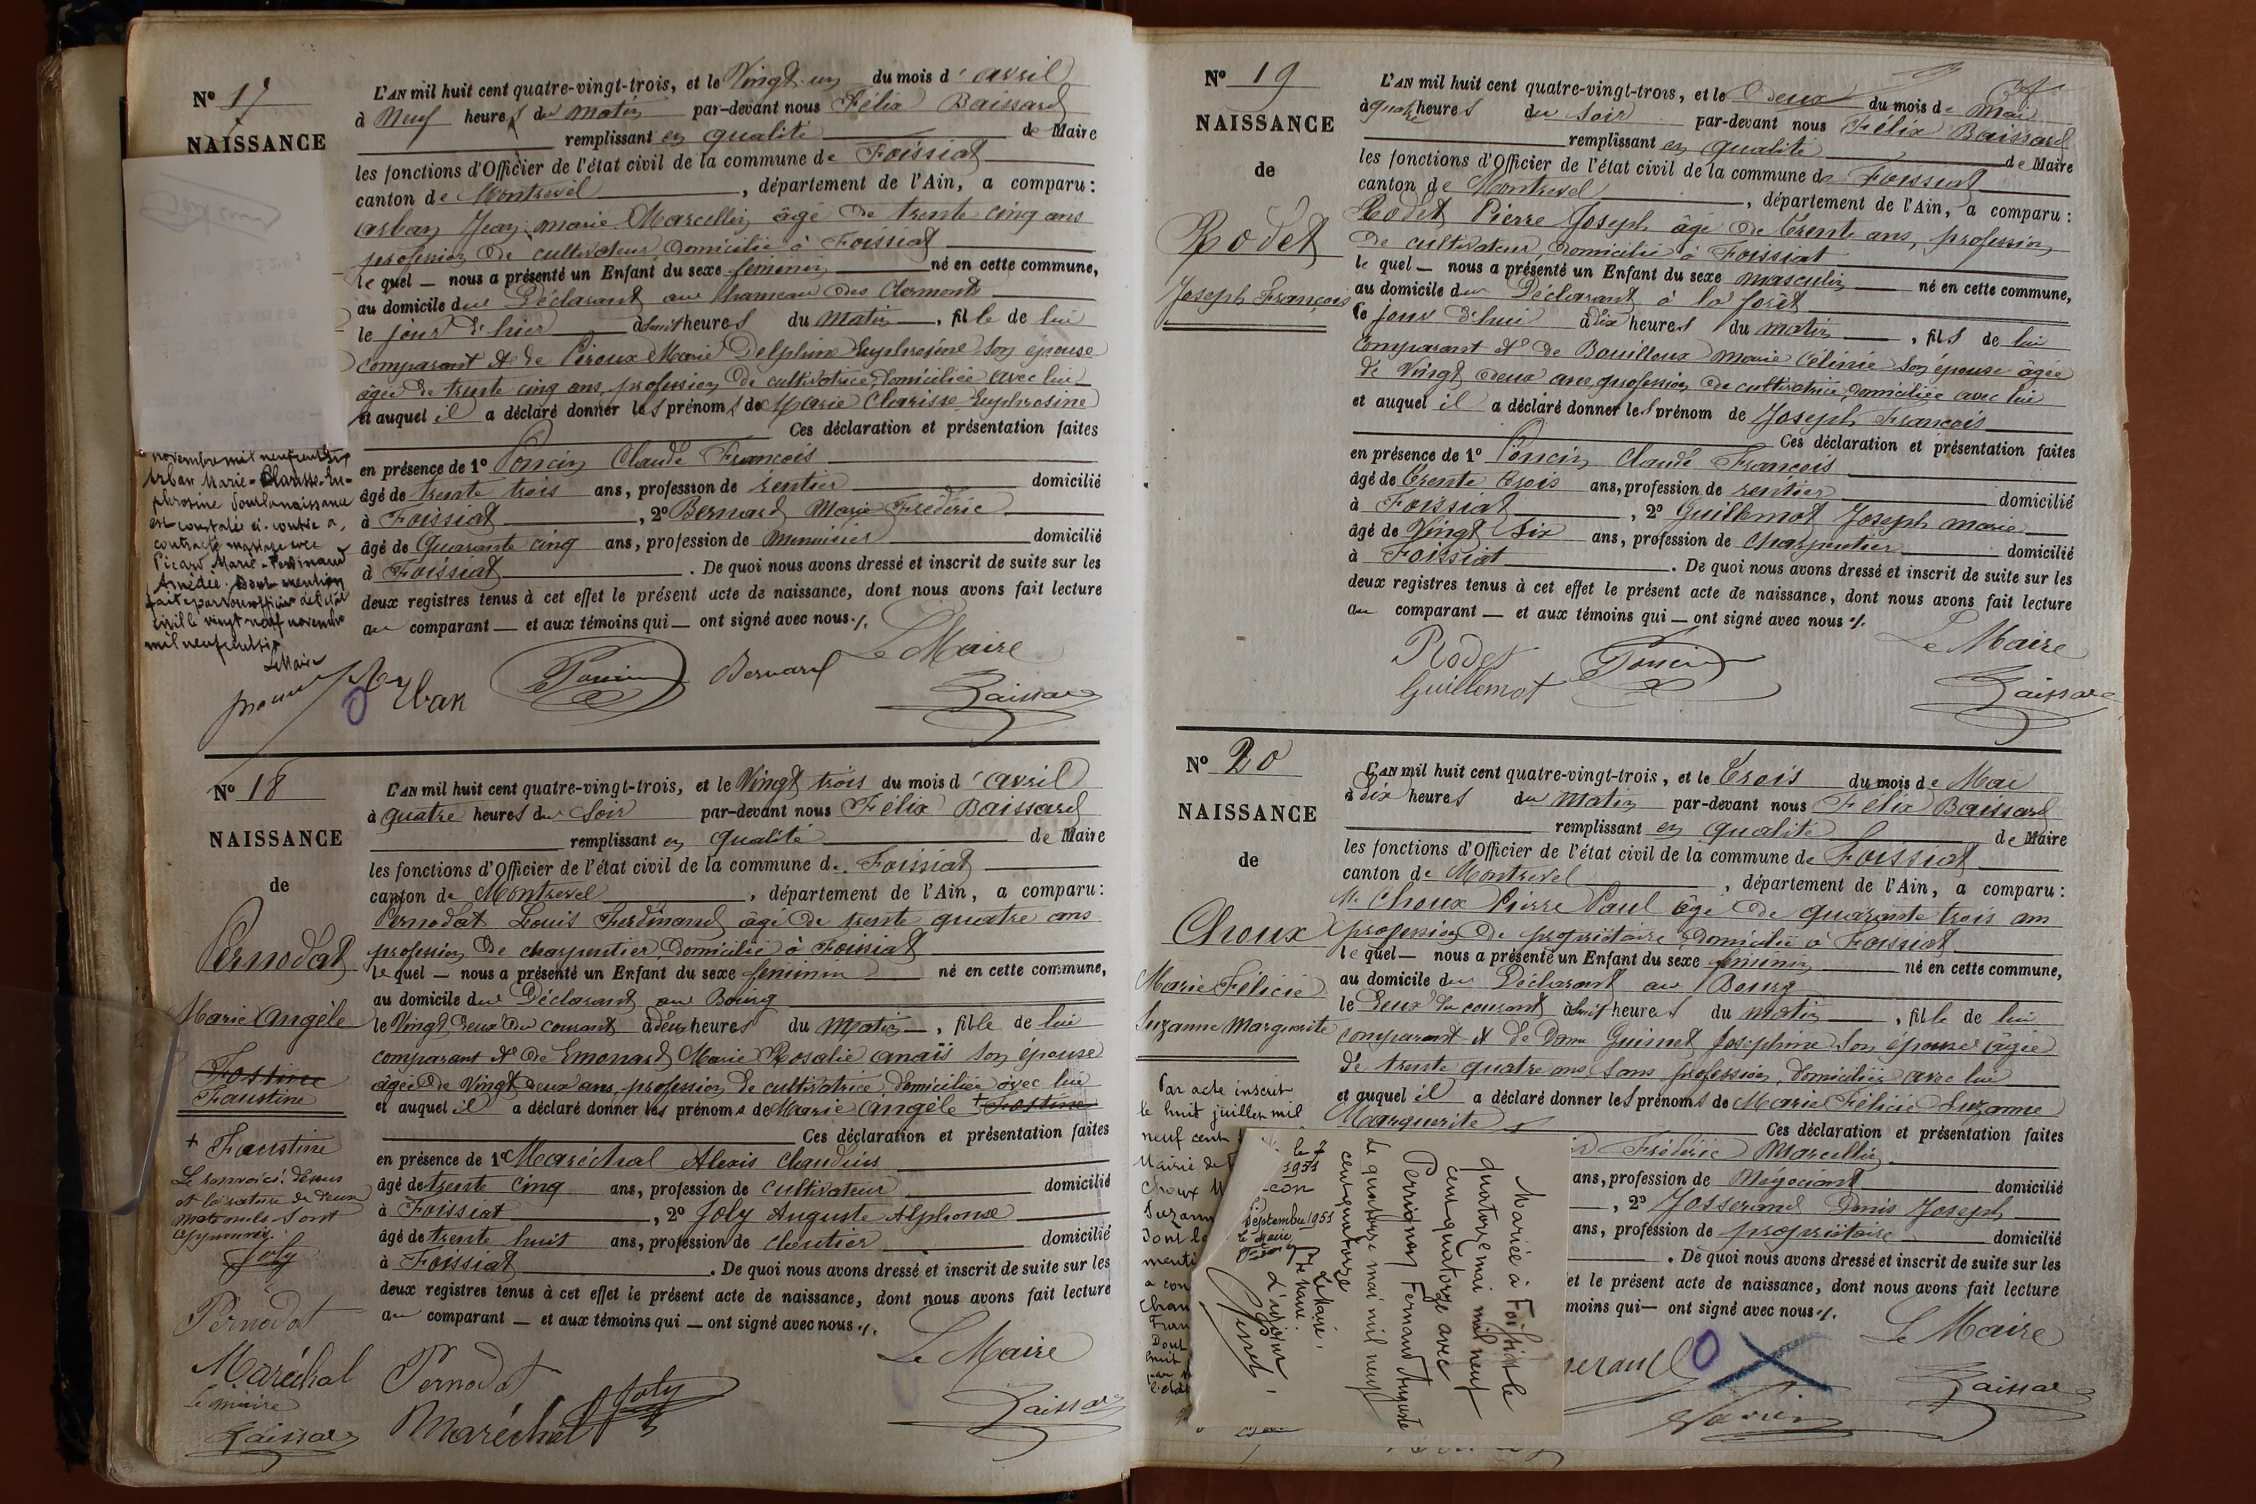 N° 17
NAISSANCE
L'AN mil huit cent quatre-vingt-trois, et le Vingt un du mois d'avril
à Neuf heures du matin par-devant nous Félix Baissard
remplissant en qualité de Maire
les fonctions d'Officier de l'état civil de la commune de Foissiat
canton de Montrevel, département de l'Ain, a comparu :
Arban Jean marie Marcellin âgé de trente cinq ans
profession de cultivateur, domicilié à Foissiat
le quel — nous a présenté un Enfant du sexe féminin né en cette commune,
au domicile du Déclarant au hameau des Clermonts
le jour d'hier à huit heures du matin, fille de lui
comparant et de Piroux Marie Delphine Euphrosine son épouse
âgée de trente cinq ans, profession de cultivatrice, domiciliée avec lui
et auquel il a déclaré donner les prénoms de Marie Clarisse Euphrosine
Ces déclaration et présentation faites
en présence de 1° Poncin Claude François
âgé de trente trois ans, profession de rentier domicilié
à Foissiat, 2° Bernard Marie Frédéric
âgé de Quarante cinq ans, profession de menuisier domicilié
à Foissiat. De quoi nous avons dressé et inscrit de suite sur les
deux registres tenus à cet effet le présent acte de naissance, dont nous avons fait lecture
au comparant — et aux témoins qui — ont signé avec nous ./.
Le Maire
Arban Poncin Bernard
Baissard
novembre mil neuf cent six
Arban Marie-Clarisse-Eu-
phrosine dont la naissance
est constatée ci-contre a
contracté mariage avec
Picard Marie-Ferdinand
Amédée. Dont mention
faite par nous officier de l'état
civil le vingt neuf novembre
mil neuf cent six
Le Maire
N° 18
NAISSANCE
de
Pernodat
Marie Angèle
Fostine
Faustine
+ Faustine
Le renvoi ci-dessus
et la rature de deux
mots nuls sont
approuvés.
Joly
Pernodat
Maréchal
Le maire
Baissard
L'AN mil huit cent quatre-vingt-trois, et le Vingt trois du mois d'avril
à quatre heures du soir par-devant nous Félix Baissard
remplissant en qualité de Maire
les fonctions d'Officier de l'état civil de la commune de Foissiat
canton de Montrevel, département de l'Ain, a comparu :
Pernodat Louis Ferdinand âgé de trente quatre ans
profession de charpentier, domicilié à Foissiat
le quel — nous a présenté un Enfant du sexe féminin né en cette commune,
au domicile du Déclarant au Bourg
le Vingt deux du courant à deux heures du matin, fille de lui
comparant et de Emonard Marie Rosalie anaïs son épouse
âgée de vingt deux ans, profession de cultivatrice, domiciliée avec lui
et auquel il a déclaré donner les prénoms de Marie Angèle + Fostine
Ces déclaration et présentation faites
en présence de 1° Maréchal Alexis Claudius
âgé de trente cinq ans, profession de cultivateur domicilié
à Foissiat, 2° Joly Auguste Alphonse
âgé de trente huit ans, profession de domicilié
à Foissiat. De quoi nous avons dressé et inscrit de suite sur les
deux registres tenus à cet effet le présent acte de naissance, dont nous avons fait lecture
au comparant — et aux témoins qui — ont signé avec nous ./.
Le Maire
Pernodat Joly
Maréchal Baissard
N° 19
NAISSANCE
de
Rodet
Joseph François
L'AN mil huit cent quatre-vingt-trois, et le deux du mois de Mai
à quatre heures du soir par-devant nous Félix Baissard
remplissant en qualité de Maire
les fonctions d'Officier de l'état civil de la commune de Foissiat
canton de Montrevel, département de l'Ain, a comparu :
Rodet Pierre Joseph âgé de trente ans, profession
de cultivateur, domicilié à Foissiat
le quel — nous a présenté un Enfant du sexe masculin né en cette commune,
au domicile du Déclarant à la forêt
le jour d'hui à dix heures du matin, fils de lui
comparant et de Bouilloux marie Célinie son épouse âgée
de vingt deux ans, profession de cultivatrice, domiciliée avec lui
et auquel il a déclaré donner les prénom de Joseph François
Ces déclaration et présentation faites
en présence de 1° Poncin Claude François
âgé de trente trois ans, profession de rentier domicilié
à Foissiat, 2° Guillemot Joseph marie
âgé de Vingt six ans, profession de charpentier domicilié
à Foissiat. De quoi nous avons dressé et inscrit de suite sur les
deux registres tenus à cet effet le présent acte de naissance, dont nous avons fait lecture
au comparant — et aux témoins qui — ont signé avec nous ./.
Le Maire
Rodet Poncin
Guillemot Baissard
N° 20
NAISSANCE
de
Choux
Marie Félicie
Suzanne Marguerite
Par acte inscrit
le huit juillet mil
neuf cent
Mairie de
Choux
Suzanne
Dont
menti
L'AN mil huit cent quatre-vingt-trois, et le trois du mois de Mai
à dix heures du matin par-devant nous Félix Baissard
remplissant en qualité de Maire
les fonctions d'Officier de l'état civil de la commune de Foissiat
canton de Montrevel, département de l'Ain, a comparu :
Mr Choux Pierre Paul âgé de quarante trois ans
profession de propriétaire, domicilié à Foissiat
le quel — nous a présenté un Enfant du sexe féminin né en cette commune,
au domicile du Déclarant au Bourg
le Deux du courant à huit heures du matin, fille de lui
comparant et de Dame Guinet Joséphine son épouse âgée
de trente quatre ans, sans profession, domiciliée avec lui
et auquel il a déclaré donner les prénoms de Marie Félicie Suzanne
Marguerite Ces déclaration et présentation faites
Frédéric Marcellin
ans, profession de Négociant domicilié
, 2° Josserand Denis Joseph
ans, profession de propriétaire domicilié
. De quoi nous avons dressé et inscrit de suite sur les
et le présent acte de naissance, dont nous avons fait lecture
moins qui — ont signé avec nous ./.
Le Maire
Baissard
Mariée à Foissiat le
quatorze mai mil neuf
cent quatorze avec
Perrignon Fernand Auguste
Le quatorze mai mil neuf
cent quatorze
Le Maire,
le 7
1951
septembre 1951